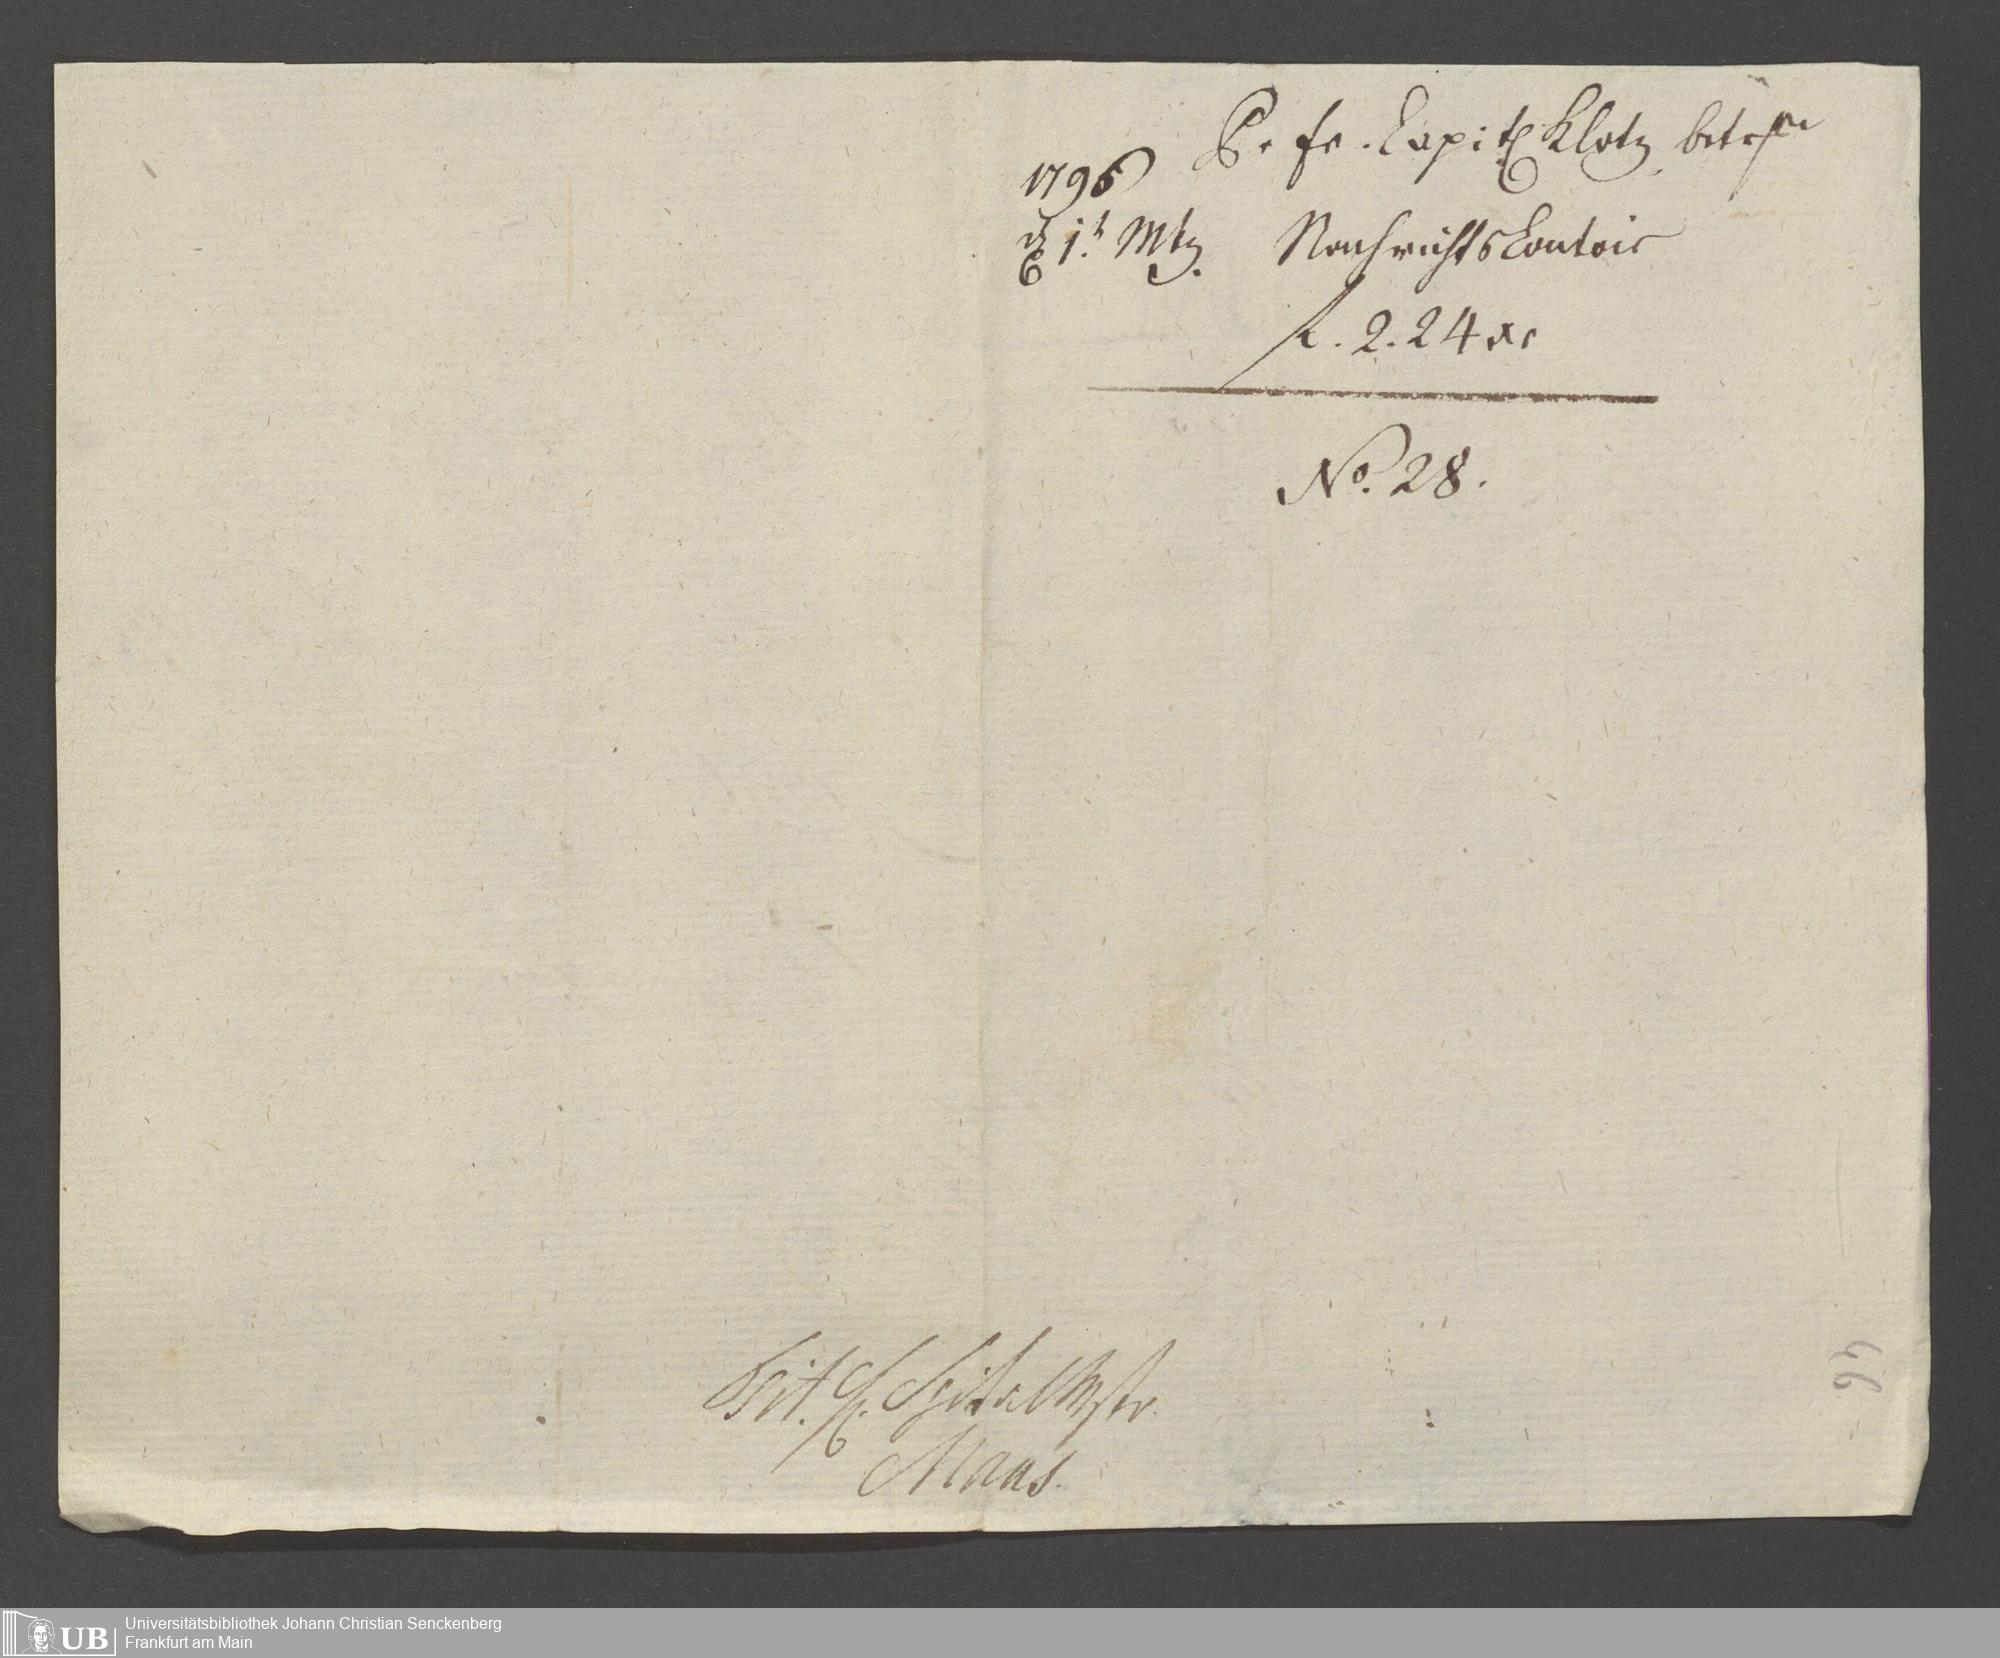 1796
d 1t Mtz.
Hr. Capit Klotz betr
Nachrichts Contoir
f. 2. 24 xr
No. 28.
Tit. H. Spitalmstr.
Maas.
Universitätsbibliothek Johann Christian Senckenberg
Frankfurt am Main
UB